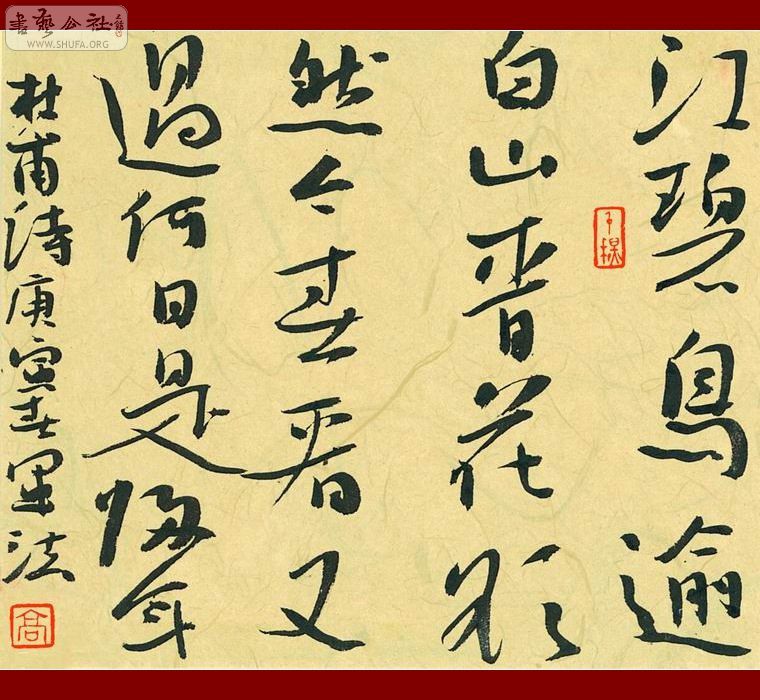 書藝公社
WWW.SHUFA.ORG
江碧鳥逾
白山青花欲
然今春看又
過何日是歸年
杜甫詩庚寅春墨法